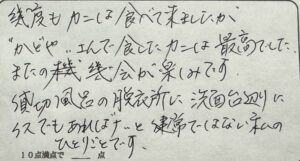 幾度もカニは食べて来ましたが、
"かどや"さんで食したカニは最高でした。
またの機会が楽しみです。
貸切風呂の脱衣所に洗面台辺りに
イスでもあればナーと健常ではない私の
ひとりごとです。
10点満点で 点